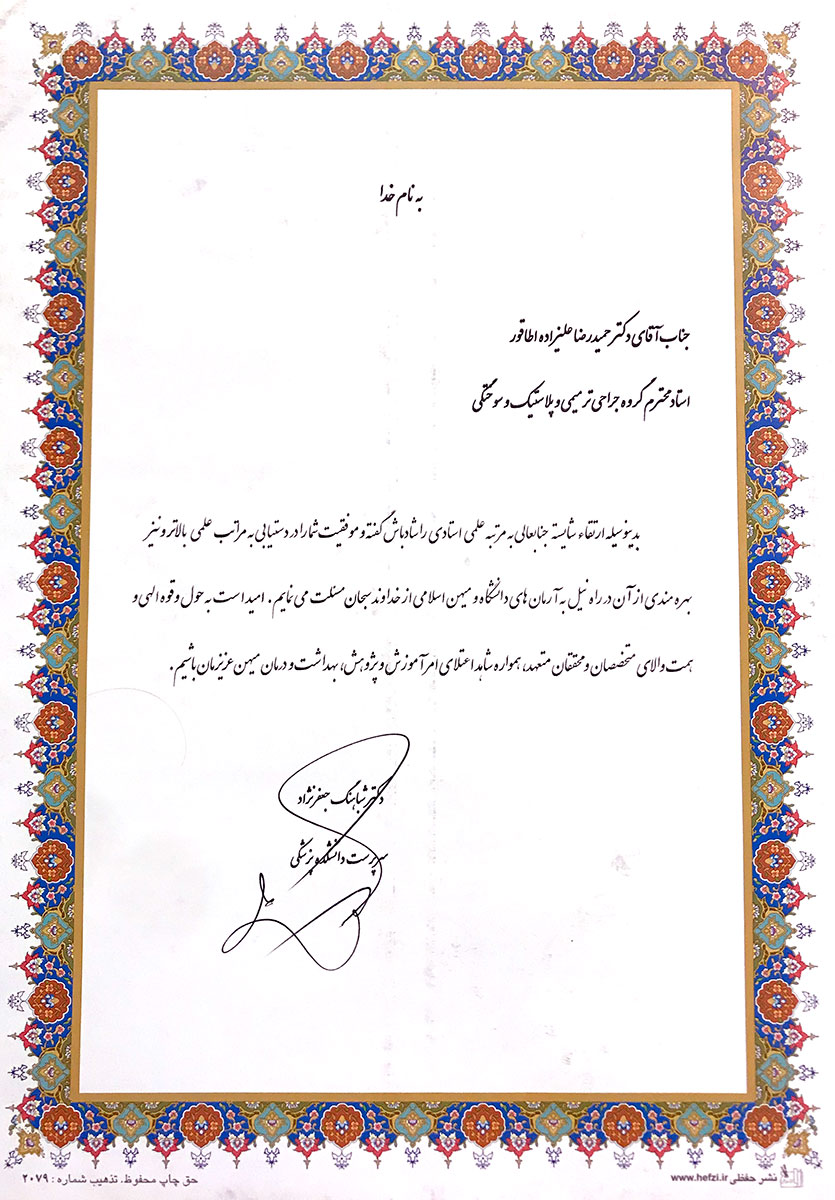 به نام خدا
جناب آقای دکتر حمیدرضا علیزاده اطاقور
استاد محترم گروه جراحی ترمیمی و پلاستیک و سوختگی
بدینوسیله ارتقاء شایسته جنابعالی به مرتبه علمی استادی را شادباش گفته و موفقیت شما را در دستیابی به مراتب علمی بالاتر و نیز
بهره مندی از آن در راه نیل به آرمان های دانشگاه و میهن اسلامی از خداوند سبحان مسئلت می نمایم. امید است به حول و قوه الهی و
همت والای متخصصان و محققان متعهد، همواره شاهد اعتلای امر آموزش و پژوهش، بهداشت و درمان میهن عزیزمان باشیم.
دکتر شباهنگ جعفرنژاد
سرپرست دانشکده پزشکی
نشر حفظی www.hefzi.ir
حق چاپ محفوظ، تذهیب شماره : ۲۰۷۹